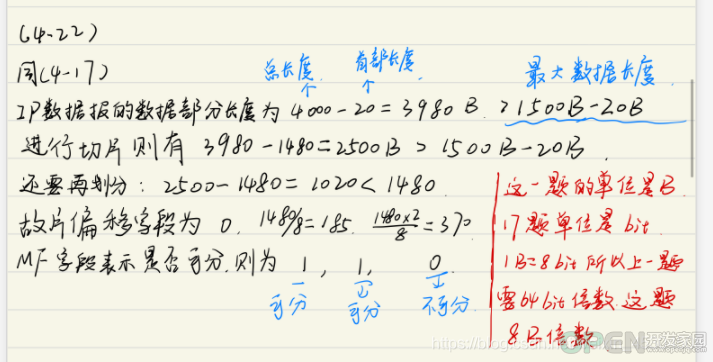 (4-22)
同(4-17)
总长度 首部长度 最大数据长度
IP数据报的数据部分长度为 4000-20=3980 B > 1500B-20B
进行切片则有 3980-1480=2500B > 1500B-20B
还要再划分: 2500-1480=1020<1480
故片偏移字段为 0, 1480/8=185. 1480×2/8=370
MF字段表示是否可分,则为 1, 1, 0
可分 可分 不可分
这一题的单位是B
17题单位是bit
1B=8bit 所以上一题
要64bit倍数.这题
8B倍数
OPEN开发家园